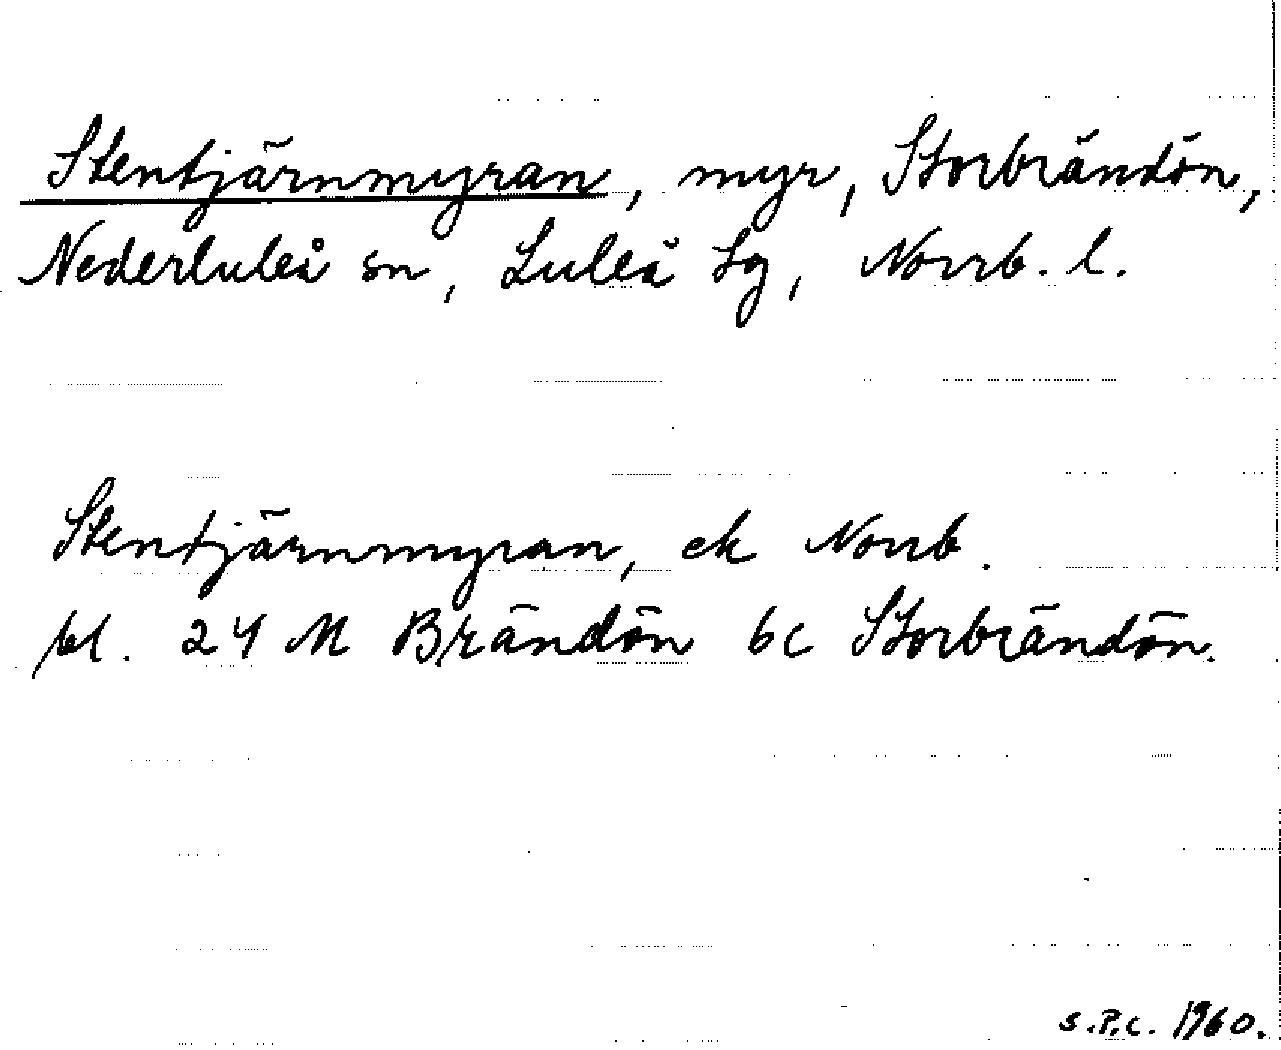 Stentjärnmyran, myr, Storbrändön,
Nederluleå sn, Luleå lg, Norrb. l.
Stentjärnmyran, ek Norrb.
bl. 24 M Brändön 6c Storbrändön.
S.P.C. 1960.